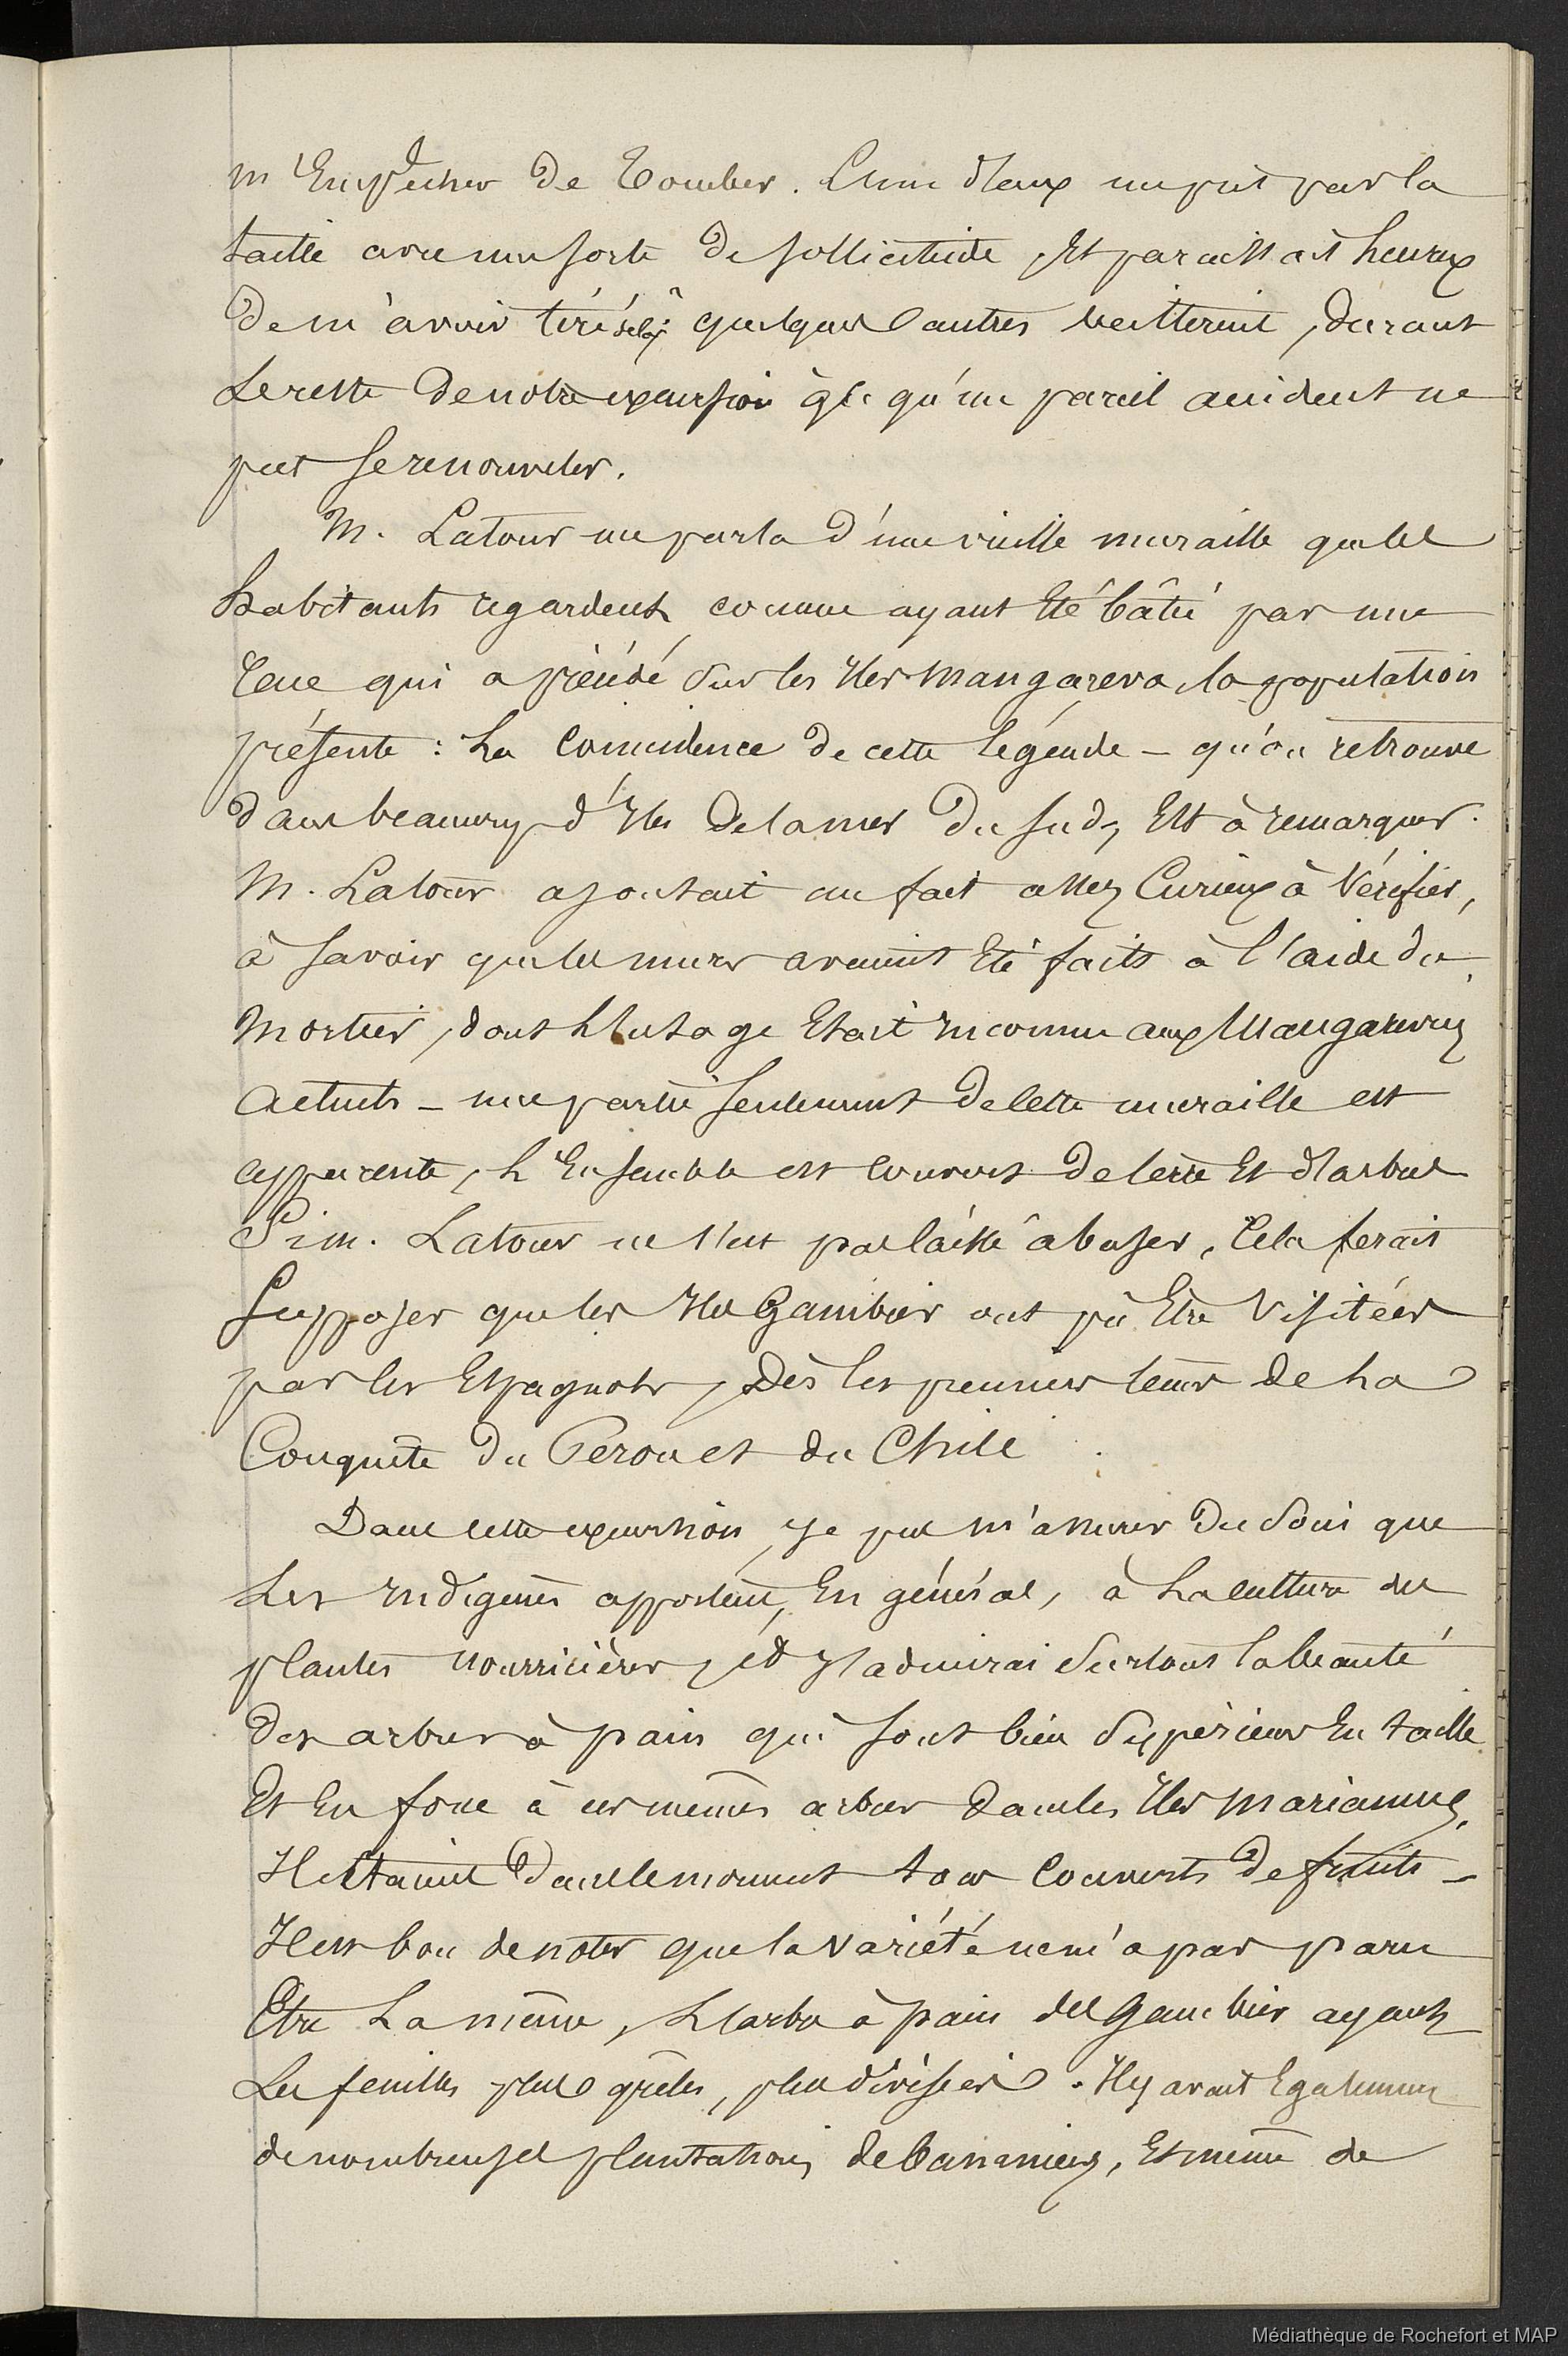 m'Empêcher de Tomber. L'un d'eux me prit par la
taille avec une sorte de sollicitude, Et paraissait heureux
de m'avoir tiré de là; quelques autres veillerent, durant
Le reste de notre excursion à ce qu'un pareil accident ne
put se renouveler.
M. Latour me parla d'une vieille muraille que les
habitants regardent comme ayant Eté bâtie par une
race qui a précédé sur les Iles Mangareva la population
présente : La Coincidence de cette légende – qu'on retrouve
dans beaucoup d'Iles de la mer du sud, Est à remarquer.
M. Latour ajoutait un fait assez Curieux à Vérifier,
à savoir que les murs avaient Eté faits à l'aide du
Mortier, dont L'usage Etait Inconnu aux Mangareviens
actuels – une partie seulement de cette muraille est
apparente, L'Ensemble est couvert de terre Et d'arbres
Si M. Latour ne s'est pas laissé abuser, Cela ferait
Supposer que les Iles Gambier ont pu Etre Visitées
par les Espagnols, Dès les premiers tems de La
Conquête du Perou et du Chili.
Dans cette excursion, Je pus m'assurer du soin que
Les Indigènes apportent, En général, à La culture des
plantes nourricières, et J'admirai surtout la beauté
des arbres à pain qui sont bien supérieurs En taille
Et En force à ces mêmes arbres dans les Iles Mariannes.
Ils Etaient dans ce moment tous couverts de fruits –
Il est bon de noter que la Variété ne m'a pas paru
Etre La même, L'arbre à pain des Gambier ayant
Les feuilles plus grêles, plus divisées. Il y avait Egalement
de nombreuses plantations de bananiers, Et même de
Médiathèque de Rochefort et MAP